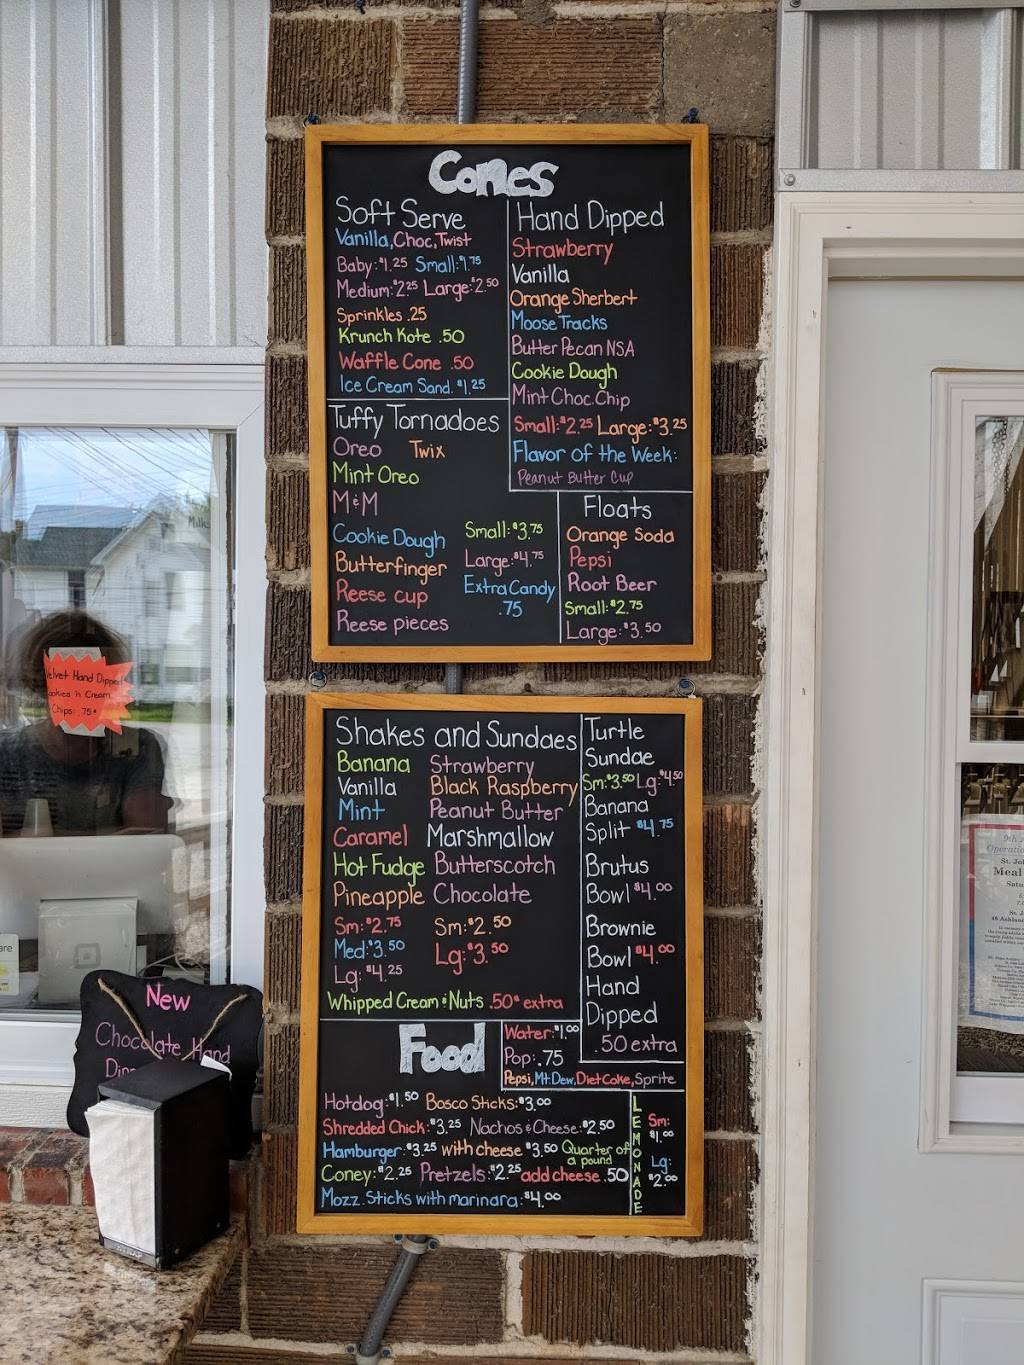 Cones
Soft Serve
Vanilla, Choc, Twist
Baby: $1.25 Small: $1.75
Medium: $2.25 Large: $2.50
Sprinkles .25
Krunch Kote .50
Waffle Cone .50
Ice Cream Sand. $1.25
Hand Dipped
Strawberry
Vanilla
Orange Sherbert
Moose Tracks
Butter Pecan NSA
Cookie Dough
Mint Choc. Chip
Small: $2.25 Large: $3.25
Flavor of the Week:
Peanut Butter Cup
Tuffy Tornadoes
Oreo Twix
Mint Oreo
M&M
Cookie Dough
Butterfinger
Reese cup
Reese pieces
Small: $3.75
Large: $4.75
Extra Candy
.75
Floats
Orange Soda
Pepsi
Root Beer
Small: $2.75
Large: $3.50
Shakes and Sundaes
Banana Strawberry
Vanilla Black Raspberry
Mint Peanut Butter
Caramel Marshmallow
Hot Fudge Butterscotch
Pineapple Chocolate
Sm: $2.75 Sm: $2.50
Med: $3.50 Lg: $3.50
Lg: $4.25
Whipped Cream & Nuts .50¢ extra
Turtle
Sundae
Sm: $3.50 Lg: $4.50
Banana
Split $4.75
Brutus
Bowl $4.00
Brownie
Bowl $4.00
Hand
Dipped
.50 extra
Food
Water: $1.00
Pop: .75
Pepsi, Mt. Dew, Diet Coke, Sprite
Hotdog: $1.50 Bosco Sticks: $3.00
Shredded Chick: $3.25 Nachos & Cheese: $2.50
Hamburger: $3.25 with cheese $3.50 Quarter of
a pound
Coney: $2.25 Pretzels: $2.25 add cheese .50
Mozz. Sticks with marinara: $4.00
LEMONADE
Sm:
$1.00
Lg:
$2.00
Milks
Hand Dipped
Cream
Chips: .75¢
New
Chocolate Hand